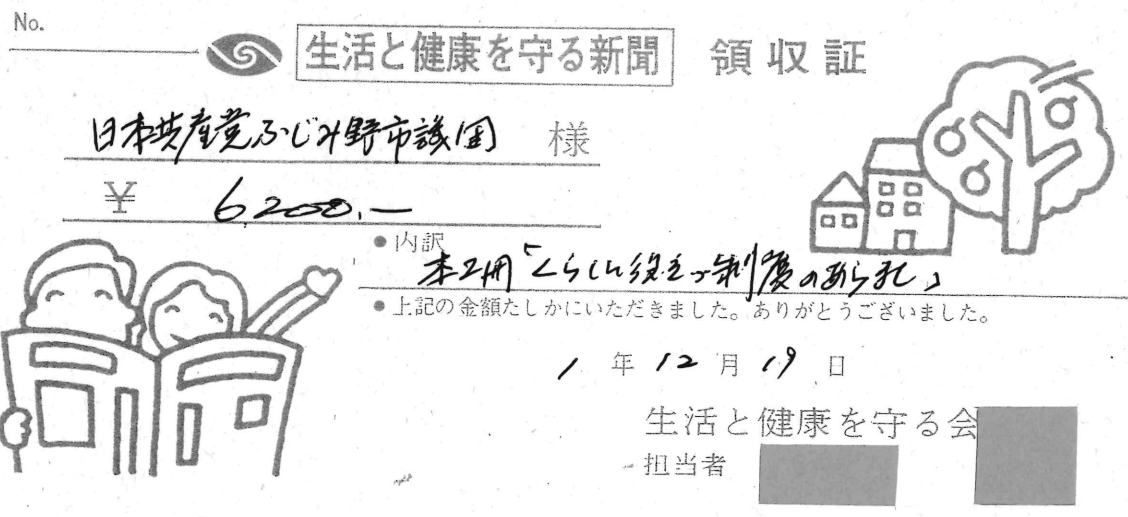 No.
生活と健康を守る新聞 領収証
日本共産党ふじみ野市議団 様
¥ 6,200.-
●内訳
本2冊「くらしに役立つ制度のあらまし」
●上記の金額たしかにいただきました。ありがとうございました。
1 年 12 月 19 日
生活と健康を守る会
担当者